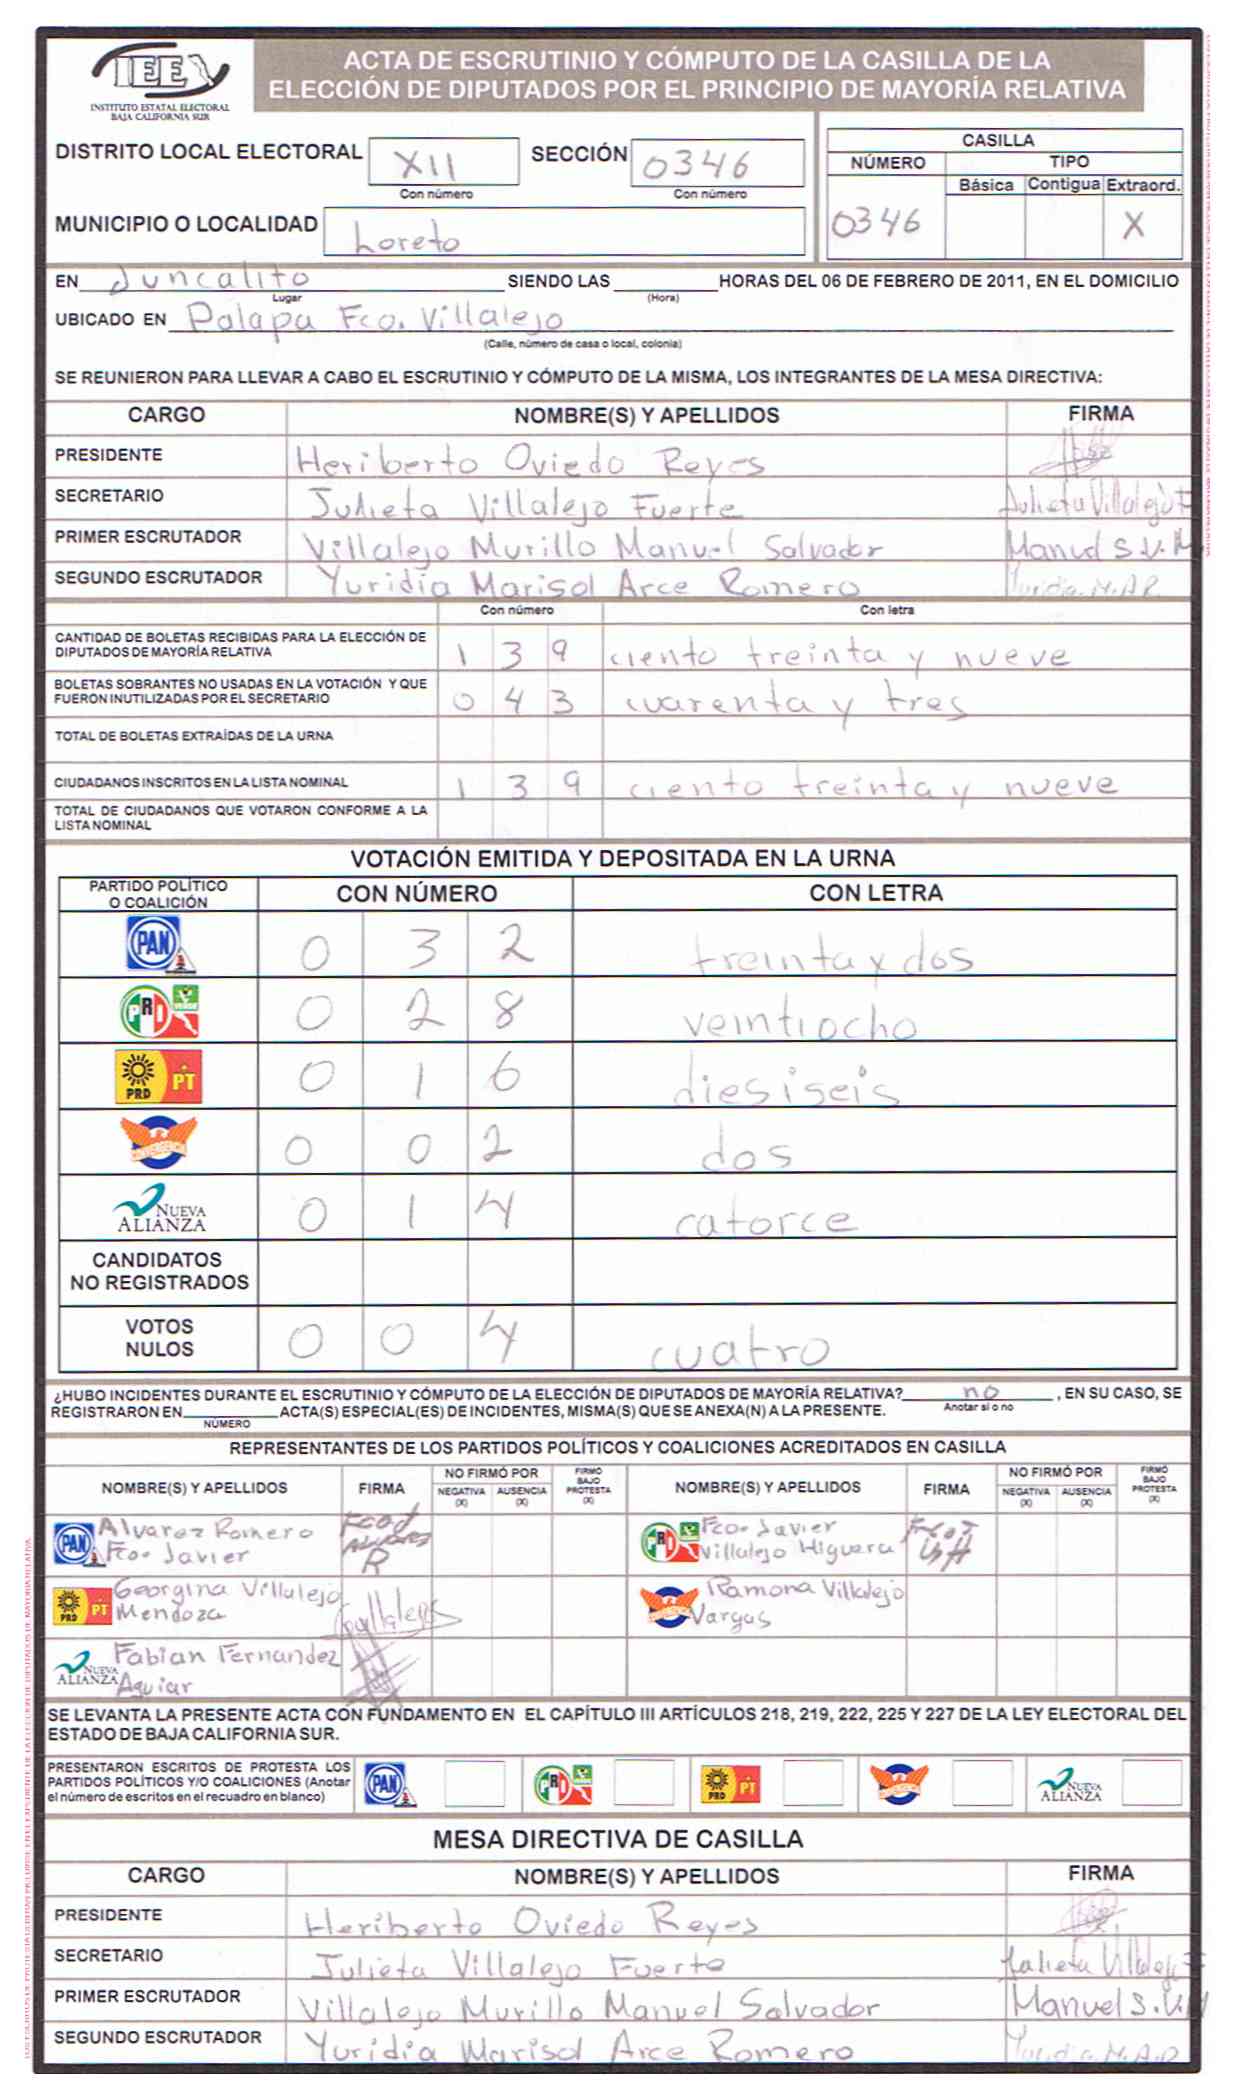 IEE
INSTITUTO ESTATAL ELECTORAL
BAJA CALIFORNIA SUR
ACTA DE ESCRUTINIO Y CÓMPUTO DE LA CASILLA DE LA
ELECCIÓN DE DIPUTADOS POR EL PRINCIPIO DE MAYORÍA RELATIVA
DISTRITO LOCAL ELECTORAL XII SECCIÓN 0346
Con número Con número
MUNICIPIO O LOCALIDAD Loreto
CASILLA
NÚMERO TIPO
Básica Contigua Extraord.
0346 X
EN Juncalito SIENDO LAS HORAS DEL 06 DE FEBRERO DE 2011, EN EL DOMICILIO
Lugar (Hora)
UBICADO EN Palapa Fco. Villalejo
(Calle, número de casa o local, colonia)
SE REUNIERON PARA LLEVAR A CABO EL ESCRUTINIO Y CÓMPUTO DE LA MISMA, LOS INTEGRANTES DE LA MESA DIRECTIVA:
CARGO NOMBRE(S) Y APELLIDOS FIRMA
PRESIDENTE Heriberto Oviedo Reyes
SECRETARIO Julieta Villalejo Fuerte Julieta Villalejo F
PRIMER ESCRUTADOR Villalejo Murillo Manuel Salvador Manuel S.V.M
SEGUNDO ESCRUTADOR Yuridia Marisol Arce Romero Yuridia.M.A.R.
Con número Con letra
CANTIDAD DE BOLETAS RECIBIDAS PARA LA ELECCIÓN DE
DIPUTADOS DE MAYORÍA RELATIVA 1 3 9 ciento treinta y nueve
BOLETAS SOBRANTES NO USADAS EN LA VOTACIÓN Y QUE
FUERON INUTILIZADAS POR EL SECRETARIO 0 4 3 cuarenta y tres
TOTAL DE BOLETAS EXTRAÍDAS DE LA URNA
CIUDADANOS INSCRITOS EN LA LISTA NOMINAL 1 3 9 ciento treinta y nueve
TOTAL DE CIUDADANOS QUE VOTARON CONFORME A LA
LISTA NOMINAL
VOTACIÓN EMITIDA Y DEPOSITADA EN LA URNA
PARTIDO POLÍTICO
O COALICIÓN CON NÚMERO CON LETRA
PAN 0 3 2 treinta y dos
PRI VERDE 0 2 8 veintiocho
PRD PT 0 1 6 diesiseis
CONVERGENCIA 0 0 2 dos
NUEVA
ALIANZA 0 1 4 catorce
CANDIDATOS
NO REGISTRADOS
VOTOS
NULOS 0 0 4 cuatro
¿HUBO INCIDENTES DURANTE EL ESCRUTINIO Y CÓMPUTO DE LA ELECCIÓN DE DIPUTADOS DE MAYORÍA RELATIVA? no , EN SU CASO, SE
Anotar si o no
REGISTRARON EN ACTA(S) ESPECIAL(ES) DE INCIDENTES, MISMA(S) QUE SE ANEXA(N) A LA PRESENTE.
NÚMERO
REPRESENTANTES DE LOS PARTIDOS POLÍTICOS Y COALICIONES ACREDITADOS EN CASILLA
NOMBRE(S) Y APELLIDOS FIRMA NO FIRMÓ POR NEGATIVA (X) AUSENCIA (X) FIRMÓ BAJO PROTESTA (X) NOMBRE(S) Y APELLIDOS FIRMA NO FIRMÓ POR NEGATIVA (X) AUSENCIA (X) FIRMÓ BAJO PROTESTA (X)
PAN Alvarez Romero
Fco. Javier
PRI Fco. Javier
Villalejo Higuera
PRD PT Georgina Villalejo
Mendoza
CONVERGENCIA Ramona Villalejo
Vargas
NUEVA
ALIANZA Fabian Fernandez
Aguiar
SE LEVANTA LA PRESENTE ACTA CON FUNDAMENTO EN EL CAPÍTULO III ARTÍCULOS 218, 219, 222, 225 Y 227 DE LA LEY ELECTORAL DEL
ESTADO DE BAJA CALIFORNIA SUR.
PRESENTARON ESCRITOS DE PROTESTA LOS
PARTIDOS POLÍTICOS Y/O COALICIONES (Anotar
el número de escritos en el recuadro en blanco)
PAN PRI PRD PT CONVERGENCIA NUEVA ALIANZA
MESA DIRECTIVA DE CASILLA
CARGO NOMBRE(S) Y APELLIDOS FIRMA
PRESIDENTE Heriberto Oviedo Reyes
SECRETARIO Julieta Villalejo Fuerte Julieta Villalejo F
PRIMER ESCRUTADOR Villalejo Murillo Manuel Salvador Manuel S.V.M
SEGUNDO ESCRUTADOR Yuridia Marisol Arce Romero Yuridia.M.A.R